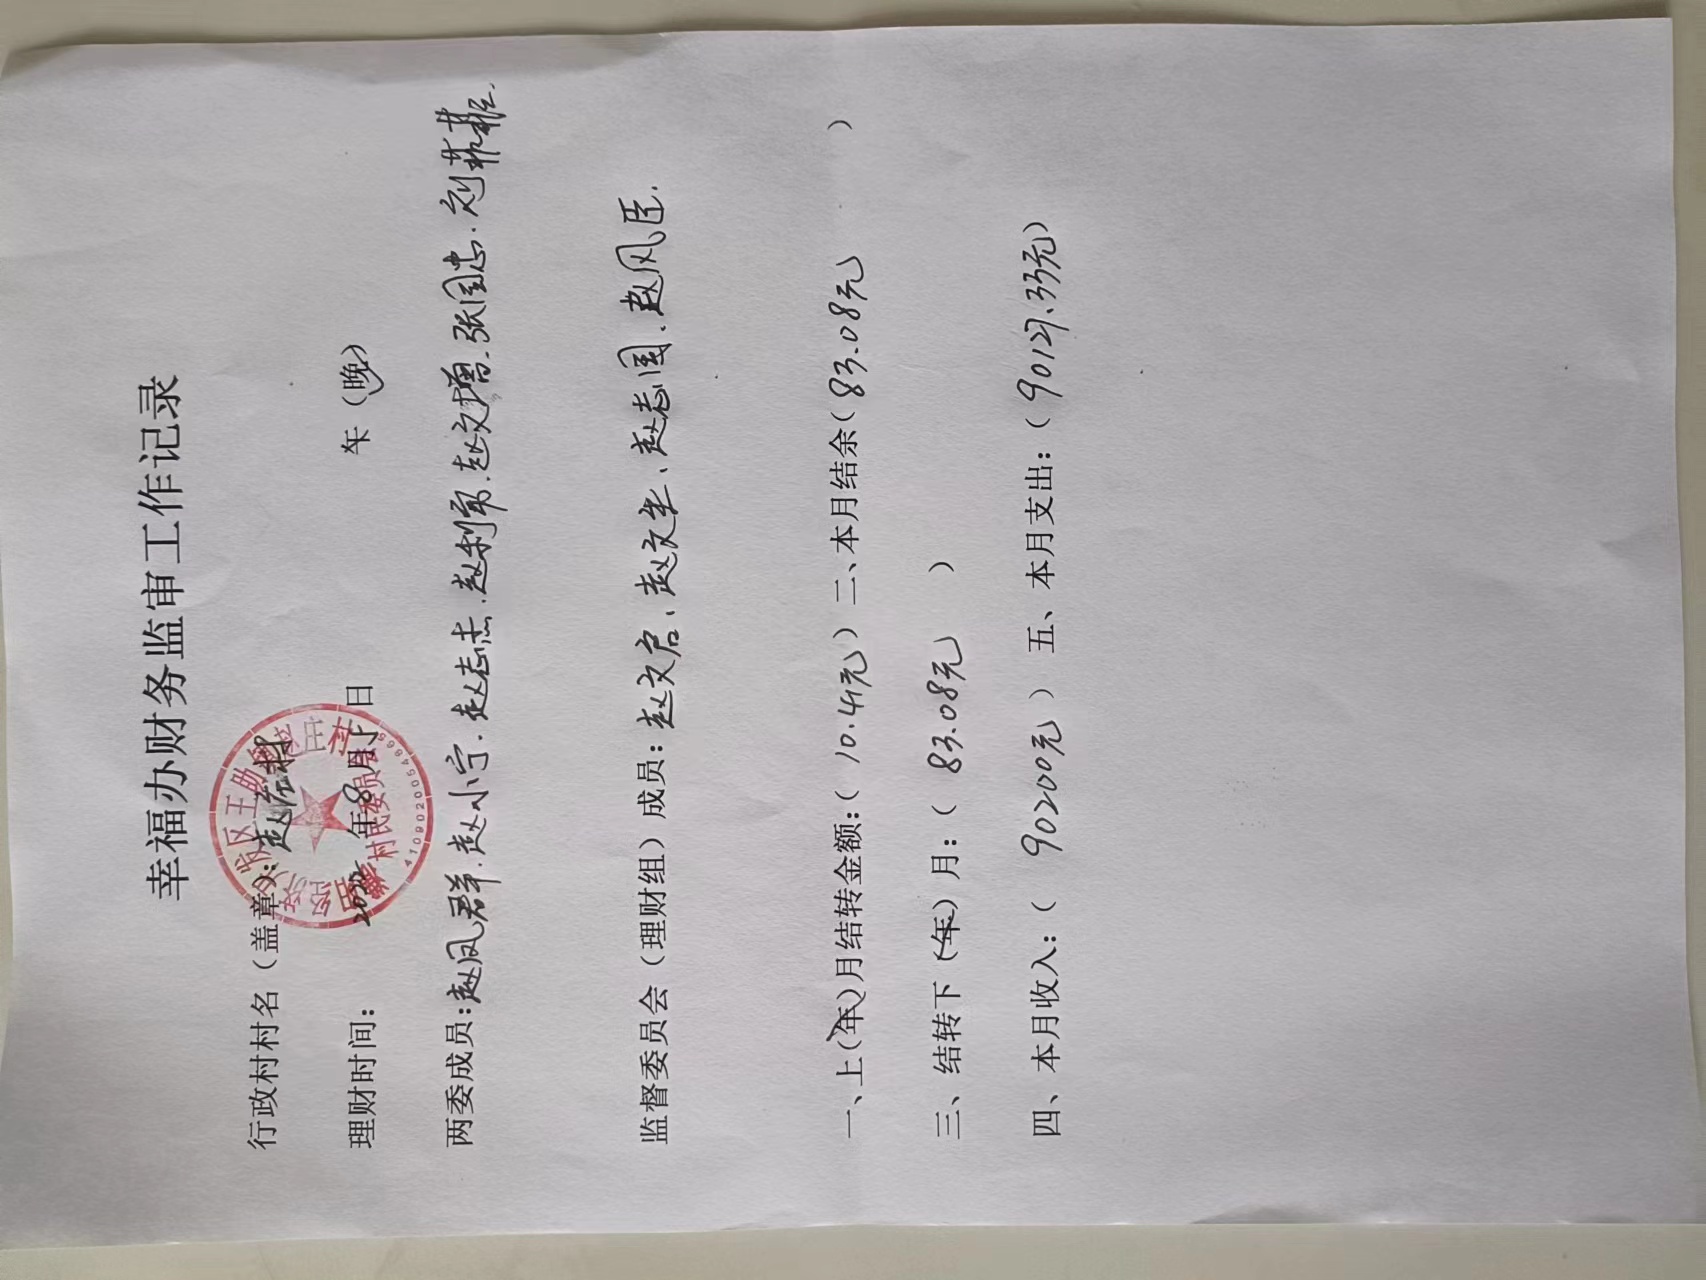 幸福办财务监审工作记录
行政村村名（盖章）：赵庄村
理财时间： 年8月 日 午（晚）
两委成员：赵凤群.赵小宁.赵志杰.赵利军.赵文增.张国忠.刘菲菲.
监督委员会（理财组）成员：赵文启、赵文生、赵志国.赵风臣.
一、上（年）月结转金额：（10.41元）二、本月结余（83.08元 ）
三、结转下（年）月：（ 83.08元 ）
四、本月收入：（ 90200元 ） 五、本月支出：（90127.33元）
村民委员会
4109020054865